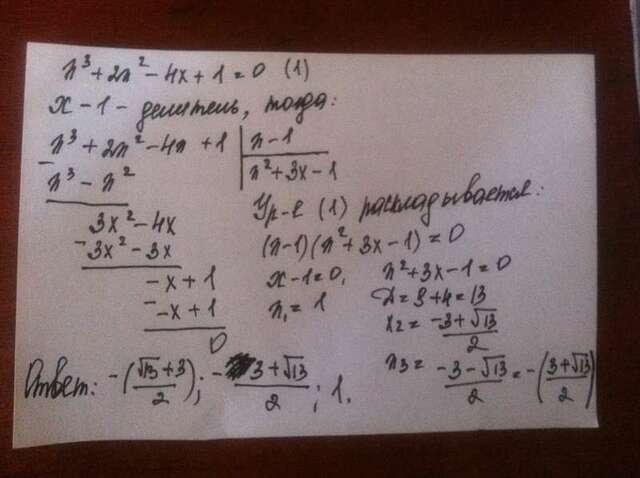 x³ + 2x² - 4x + 1 = 0 (1)
x - 1 - делитель, тогда:
x³ + 2x² - 4x + 1 | x - 1
- x³ - x² | x² + 3x - 1
3x² - 4x
- 3x² - 3x
-x + 1
- -x + 1
0
Ур-е (1) раскладывается:
(x-1)(x² + 3x - 1) = 0
x - 1 = 0,
x₁ = 1
x² + 3x - 1 = 0
D = 9 + 4 = 13
x₂ = (-3 + √13)/2
x₃ = (-3 - √13)/2 = -((3 + √13)/2)
Ответ: -((√13 + 3)/2); (-3 + √13)/2; 1.